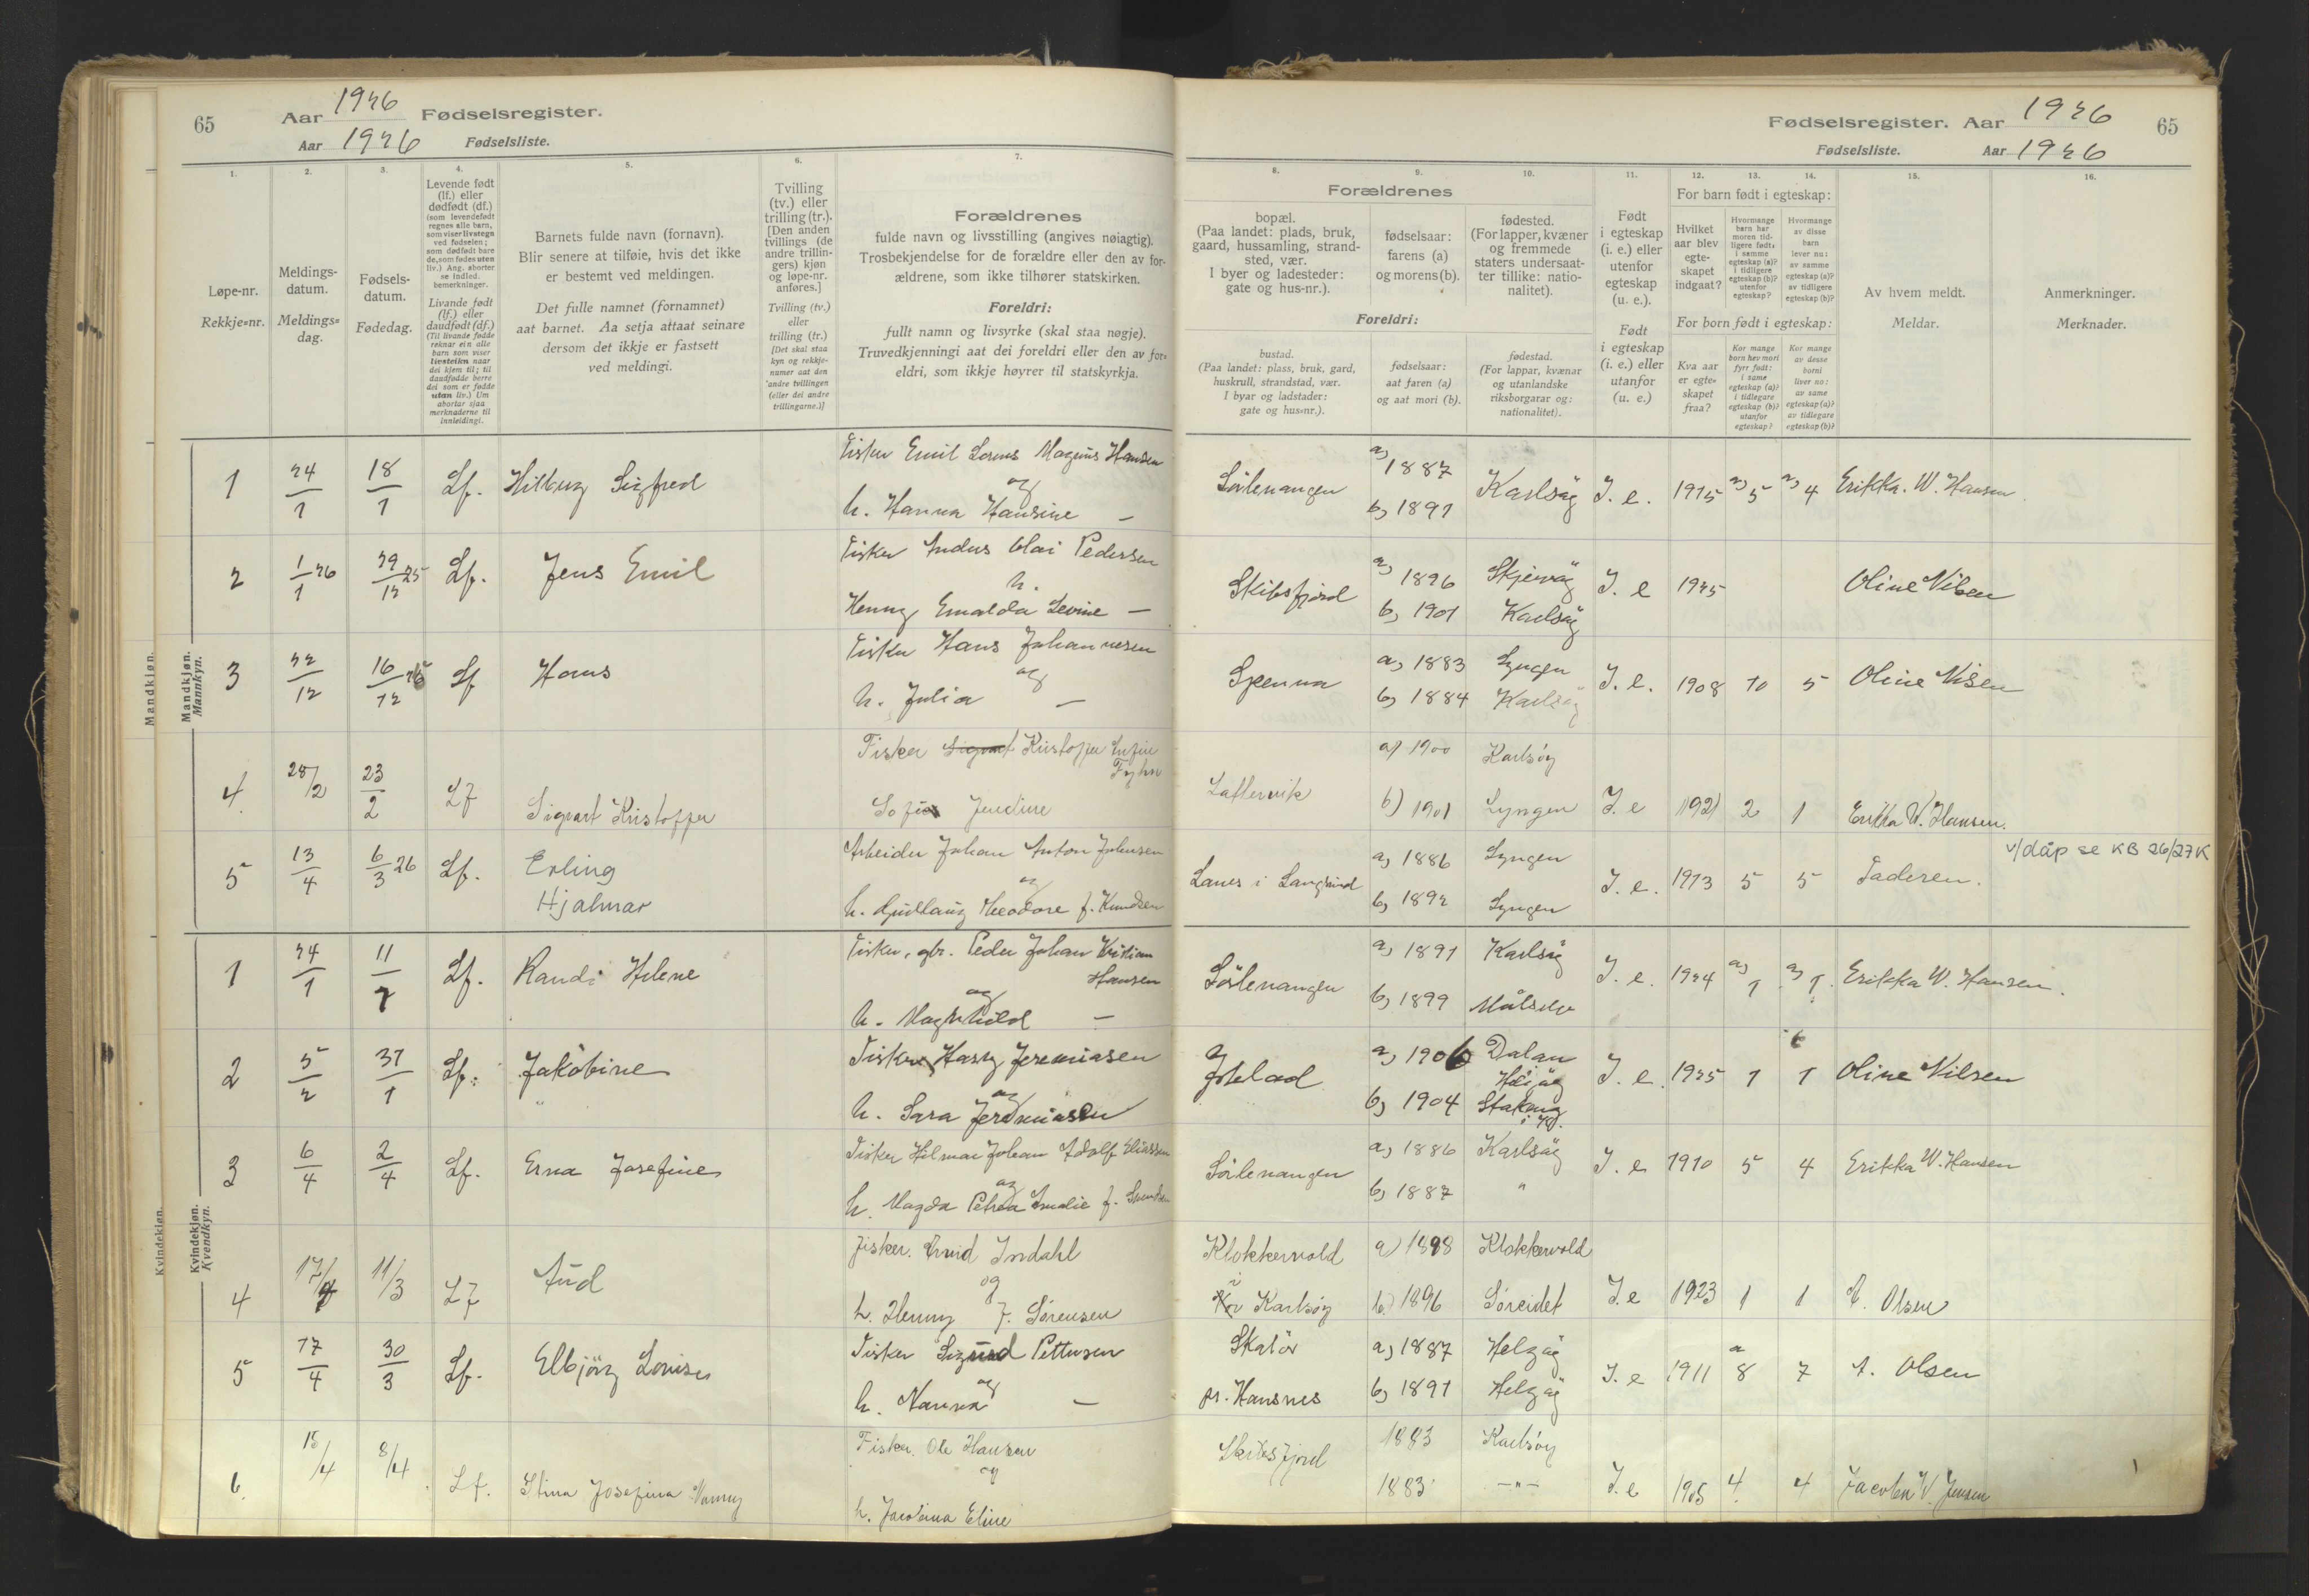 65
Aar 1926 Fødselsregister.
Aar 1926 Fødselsliste.
1.
2.
3.
4.
5.
6.
7.
Løpe-nr.
Rekkje-nr.
Meldings-
datum.
Meldings-
dag.
Fødsels-
datum.
Fødedag.
Levende født
(lf.) eller
dødfødt (df.)
(som levendefødt
regnes alle barn,
som viser livstegn
ved fødselen;
som dødfødt bare
de, som fødes uten
liv.) Ang. aborter
se indled.
bemerkninger.
Livande født
(lf.) eller
daudfødt (df.)
(Til livande fødde
reknar ein alle
barn som viser
livsteikn naar
dei kjem til; til
daudfødde berre
dei som er fødde
utan liv.) Um
abortar sjaa
merknaderne til
innleidingi.
Barnets fulde navn (fornavn).
Blir senere at tilføie, hvis det ikke
er bestemt ved meldingen.
Det fulle namnet (fornamnet)
aat barnet. Aa setja attaat seinare
dersom det ikkje er fastsett
ved meldingi.
Tvilling
(tv.) eller
trilling (tr.).
[Den anden
tvillings (de
andre trillin-
gers) kjøn
og løpe-nr.
anføres.]
Tvilling (tv.)
eller
trilling (tr.)
[Det skal staa
kyn og rekkje-
numer aat den
andre tvillingen
(eller dei andre
trillingarne.)]
Forældrenes
fulde navn og livsstilling (angives nøiagtig).
Trosbekjendelse for de forældre eller den av for-
ældrene, som ikke tilhører statskirken.
Foreldri:
fullt namn og livsyrke (skal staa nøgje).
Truvedkjenningi aat dei foreldri eller den av for-
eldri, som ikkje høyrer til statskyrkja.
Mandkjøn.
Mandkjøn.
Mannkyn.
1 24/1 18/1 Lf. Sigfred
Fisker Emil Magnus Hansen
og
h. Hanna Hansine —
2 1/1 26 29/12 25 Lf. Jens Emil
Fisker Pedersen
h.
Henny —
3 22/12 16/12 Lf Hans
Fisker Hans Johannesen
og
h. Julia —
4 28/2 23/2 Lf Sigvart Kristoffer
Fisker Kristoffer
Fyhn
Jendine
5 13/4 6/3 26 Lf. Erling
Hjalmar
Arbeider Johan Anton Johnsen
og
h. f. Knudsen
Kvindekjøn.
Kvindekjøn.
Kvendkyn.
1 24/1 11/1 Lf. Randi Helene
Fisker, gbr. Peder Johan Kristian
Hansen
og
h. Magnhild —
2 5/2 31/1 Lf. Jakobine
Fisker Harry Jeremiasen
og
h. Sara Jeremiasen
3 6/4 2/4 Lf. Erna Josefine
Fisker Hilmar Johan Adolf Eliassen
og
h. Magda Petrea Amalie f.
4 17/4 11/3 Lf Aud
Fisker. Indahl
og
h. Henny f. Sørensen
5 17/4 30/3 Lf. Elbjörg Lovise
Fisker Sigurd Pettersen
og
h. Nanna —
6. 15/4 8/4 Lf. Stina Josefina Nanny
Fisker. Ole Hansen
og
h. Eline
Fødselsregister. Aar 1926
65
Fødselsliste. Aar 1926
8.
9.
10.
11.
12.
13.
14.
15.
16.
Forældrenes
bopæl.
(Paa landet: plads, bruk,
gaard, hussamling, strand-
sted, vær.
I byer og ladesteder:
gate og hus-nr.).
fødselsaar:
farens (a)
og morens (b).
fødested.
(For lapper, kvæner
og fremmede
staters undersaat-
ter tillike: natio-
nalitet).
Foreldri:
bustad.
(Paa landet: plass, bruk, gard,
huskrull, strandstad, vær.
I byar og ladstader:
gate og hus-nr.).
fødselsaar:
aat faren (a)
og aat mori (b).
fødestad.
(For lappar, kvænar
og utanlandske
riksborgarar og:
nationalitet).
Født
i egteskap
(i. e.) eller
utenfor
egteskap
(u. e.).
Født
i egteskap
(i. e.) eller
utanfor
(u. e.)
For barn født i egteskap:
Hvilket
aar blev
egte-
skapet
indgaat?
Hvormange
barn har
moren tid-
ligere født:
i samme
egteskap (a)?
i tidligere
egteskap (b)?
utenfor
egteskap?
Hvormange
av disse
barn
lever nu:
av samme
egteskap (a)?
av tidligere
egteskap (b)?
For born født i egteskap:
Kva aar
er egte-
skapet
fraa?
Kor mange
born hev mori
fyrr født:
i same
egteskap (a)?
i tidlegare
egteskap (b)?
utanfor
egteskap?
Kor mange
av desse
borni
liver no:
av same
egteskap (a)?
av tidlegare
egteskap (b)?
Av hvem meldt.
Meldar.
Anmerkninger.
Merknader.
Sörlenangen a) 1887 Karlsöy I. e. 1915 a) 5 a) 4 Erikka. W. Hansen
b) 1891
Skibsfjord a) 1896 Skjervöy I. e 1925 Oline Nilsen
b) 1901 Karlsöy
Spenna a) 1883 Lyngen I. e. 1908 10 5 Oline Nilsen
b) 1884 Karlsöy
a) 1900 Karlsöy
b) 1901 Lyngen I. e 1921 2 1 Erikka W. Hansen.
v/dåp se KB 26/27K
Lanes i Langsund a) 1886 Lyngen I. e. 1913 5 5 Faderen.
b) 1892 Lyngen
Sörlenangen a) 1891 Karlsöy I. e. 1924 a) 1 a) 1 Erikka W. Hansen.
b) 1899 Målselv
a) 1906 Dalan
Helgöy I. e. 1925 1 1 Oline Nilsen
b) 1904
Sörlenangen a) 1886 Karlsöy I. e 1910 5 4 Erikka W. Hansen
b) 1887 "
Klokkervold a) 1898 Klokkervold
i
Karlsöy b) 1896 Söreidet I. e 1923 1 1 A. Olsen
Skatör a) 1887 Helgöy I. e 1911 a 8 7 A. Olsen
pr. Hansnes b) 1891 Helgöy
Skibsfjord 1883 Karlsöy
1883 —"— I. e 1905 4 4 W. Jensen